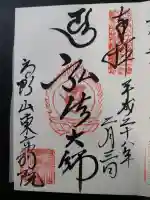 奉拝
平成二十年
二月三日
弘法大師
高野山東京別院